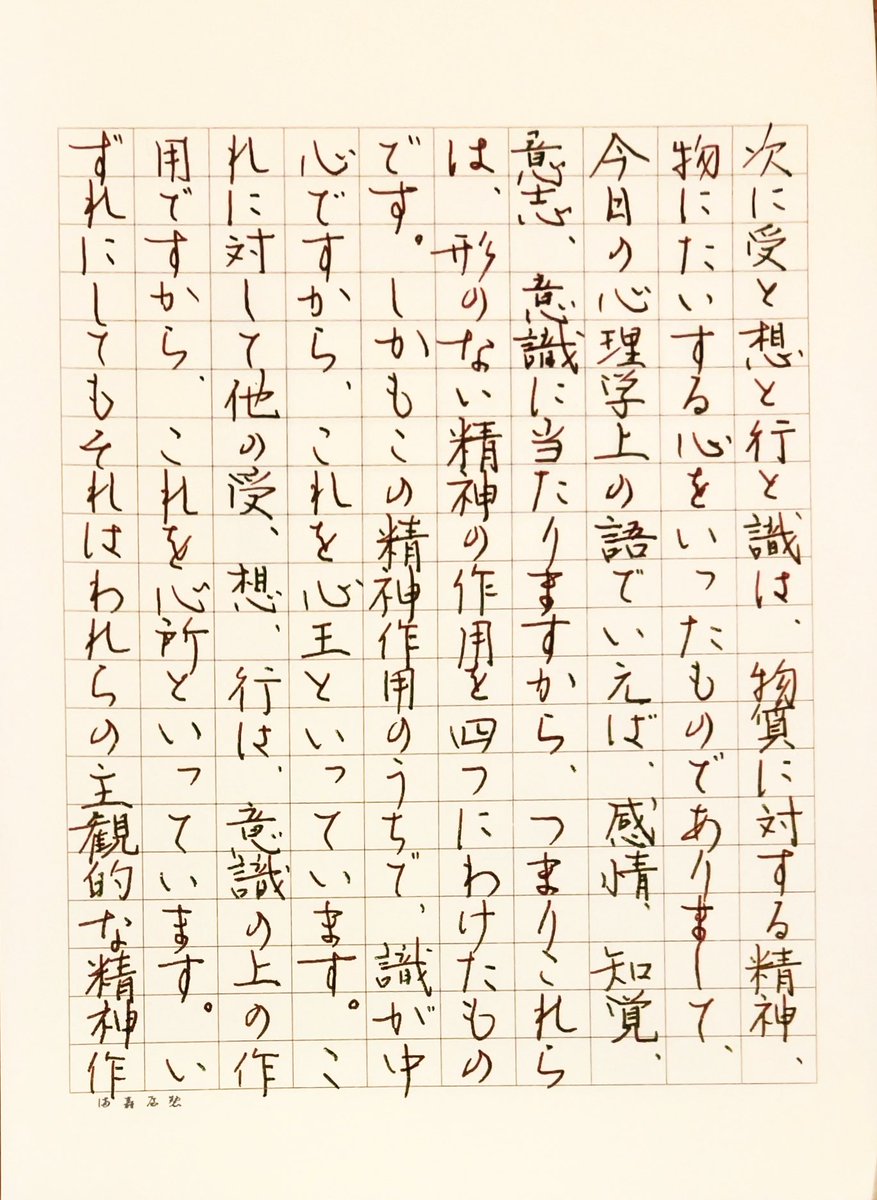 次に受と想と行と識は、物質に対する精神、
物にたいする心をいったものでありまして、
今日の心理学上の語でいえば、感情、知覚、
意志、意識に当たりますから、つまりこれら
は、形のない精神の作用を四つにわけたもの
です。しかもこの精神作用のうちで、識が中
心ですから、これを心王といっています。こ
れに対して他の受、想、行は、意識の上の作
用ですから、これを心所といっています。い
ずれにしてもそれはわれらの主観的な精神作